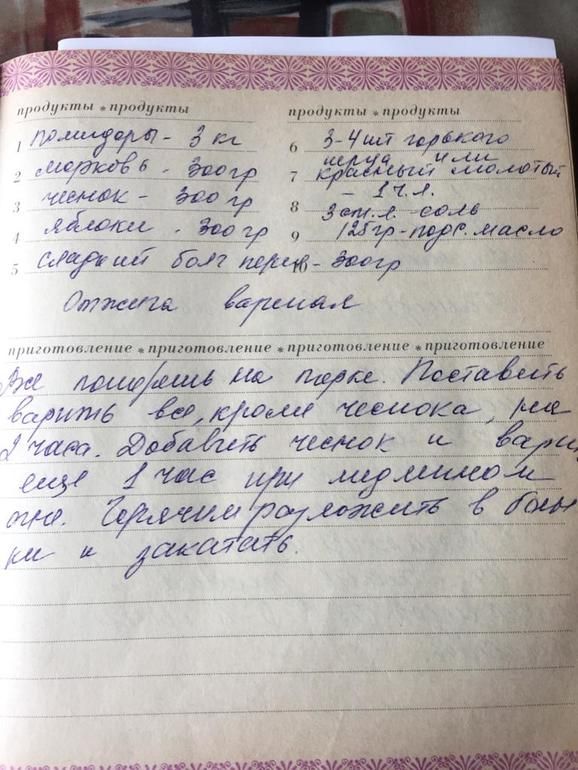 продукты * продукты
1 помидоры - 3 кг
2 морковь - 300 гр
3 чеснок - 300 гр
4 яблоки - 300 гр
5 сладкий болг перец - 300гр
продукты * продукты
6 3-4 шт горького
перца или
7 красный молотый
- 1 ч.л.
8 3 ст.л. соль
9 125 гр - подс. масло
10
вареная
приготовление * приготовление * приготовление * приготовление
Все на терке. Поставить
варить все, кроме чеснока, на
2 часа. Добавить чеснок и варить
еще 1 час при медленном
огне. Горячим разложить в бан
ки и закатать.